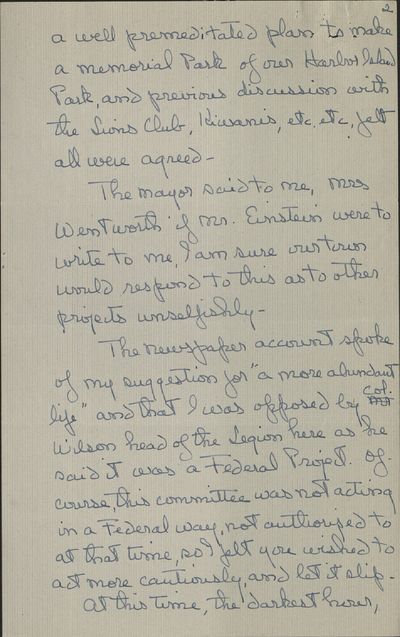 2
a well premeditated plan to make
a memorial Park of our Harbor Island
Park, and previous discussion with
the Lions Club, Kiwanis, etc. etc, felt
all were agreed -
The mayor said to me, Mrs
Wentworth if Mr. Einstein were to
write to me, I am sure our town
would respond to this as to other
projects unselfishly -
The newspaper account spoke
of my suggestion for "a more abundant
life" and that I was opposed by Col.
Wilson head of the Legion here as he
said it was a Federal Project. Of
course, this committee was not acting
in a Federal way, not authorized to
at that time, so I felt you wished to
act more cautiously, and let it slip.
At this time, the darkest hour,